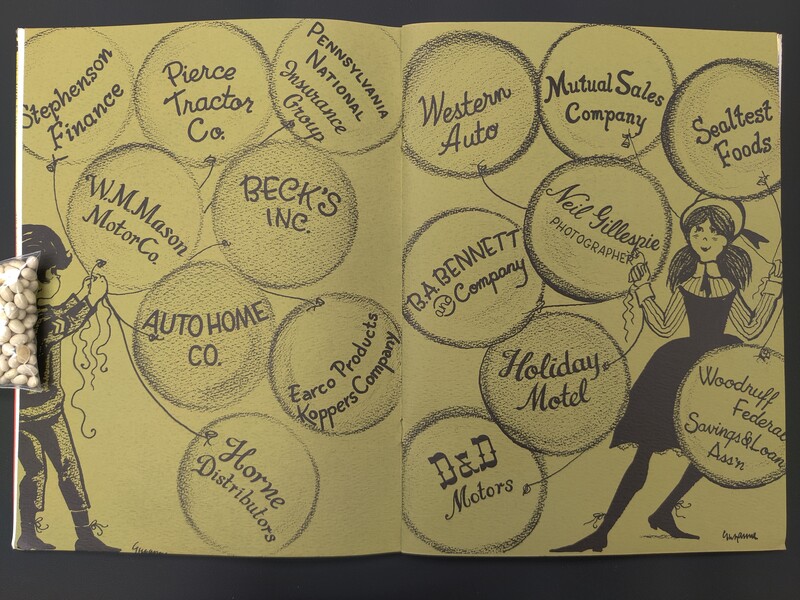 Stephenson
Finance
Pierce
Tractor
Co.
PENNSYLVANIA
NATIONAL
Insurance
Group
W.M.Mason
Motor Co.
BECK'S
INC.
AUTO HOME
CO.
Earco Products
Koppers Company
Horne
Distributors
Western
Auto
Mutual Sales
Company
Sealtest
Foods
B.A. BENNETT
and Company
Neil Gillespie
PHOTOGRAPHER
Holiday
Motel
Woodruff
Federal
Savings & Loan
Ass'n
D&D
Motors